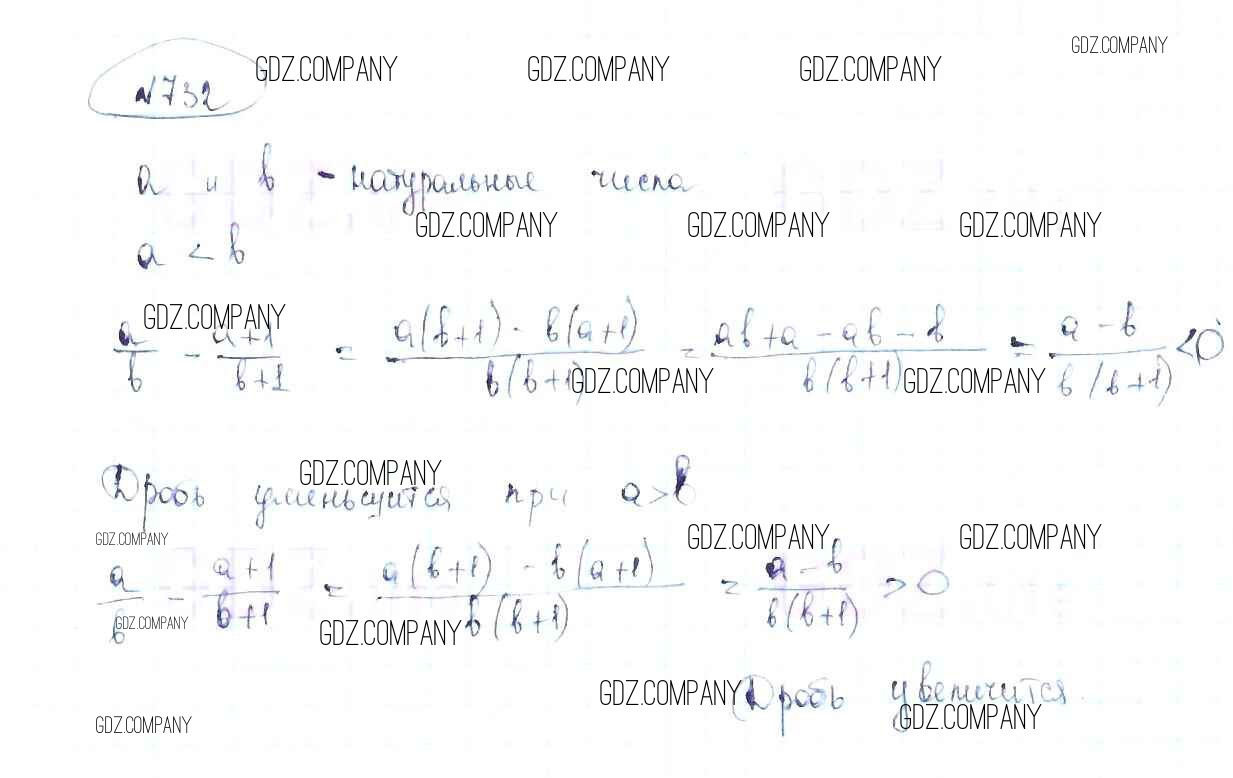 GDZ.COMPANY
№732 GDZ.COMPANY GDZ.COMPANY GDZ.COMPANY
a и b - натуральные числа
GDZ.COMPANY GDZ.COMPANY GDZ.COMPANY
a < b
GDZ.COMPANY
a/b - (a+1)/(b+1) = (a(b+1) - b(a+1))/(b(b+1)) = (ab+a-ab-b)/(b(b+1)) = (a-b)/(b(b+1)) < 0
GDZ.COMPANY GDZ.COMPANY
GDZ.COMPANY
Дробь уменьшится при a>b
GDZ.COMPANY GDZ.COMPANY GDZ.COMPANY
a/b - (a+1)/(b+1) = (a(b+1) - b(a+1))/(b(b+1)) = (a-b)/(b(b+1)) > 0
GDZ.COMPANY GDZ.COMPANY
GDZ.COMPANY Дробь увеличится.
GDZ.COMPANY GDZ.COMPANY